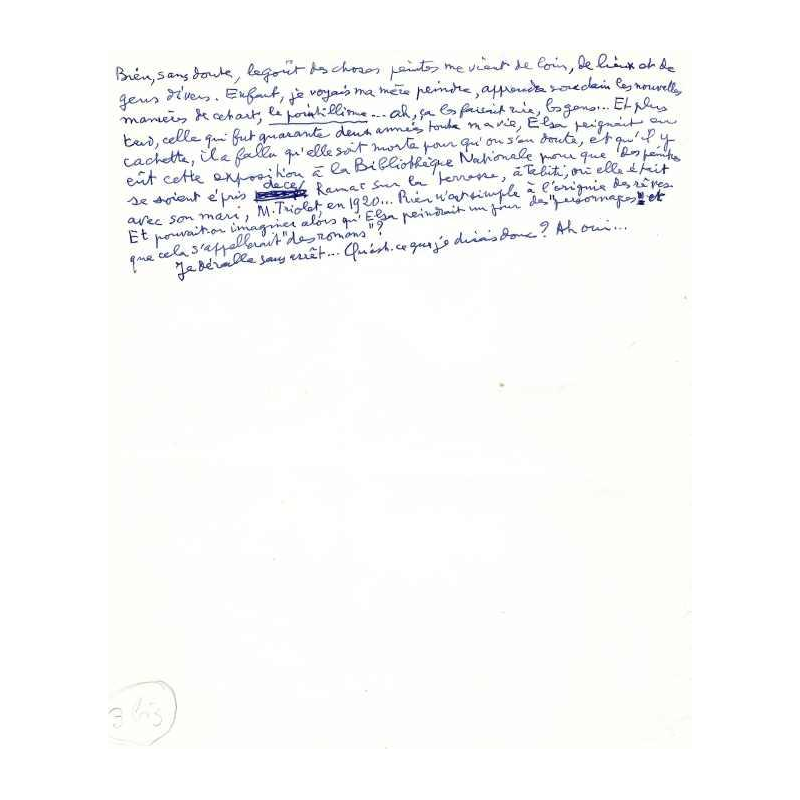 Bien, sans doute, le goût des choses peintes me vient de loin, de lieux et de
gens divers. Enfant, je voyais ma mère peindre, apprendre soudain les nouvelles
manières de cet art, le pointillisme... ah, ça les faisait rire, les gens... Et plus
tard, celle qui fut quarante deux années toute ma vie, Elsa peignait en
cachette, il a fallu qu'elle soit morte pour qu'on s'en doute, et qu'il y
eût cette exposition à la Bibliothèque Nationale pour que des peintres
se soient épris de ce Hamac sur la terrasse, à Tahiti, où elle était
avec son mari, M. Triolet, en 1920... Rien n'est simple à l'origine des rêves.
Et pouvait-on imaginer alors qu'Elsa peindrait un jour des "personnages" et
que cela s'appellerait "des romans"?
Je déraille sans arrêt... Qu'est-ce que je disais donc? Ah oui...
3 bis